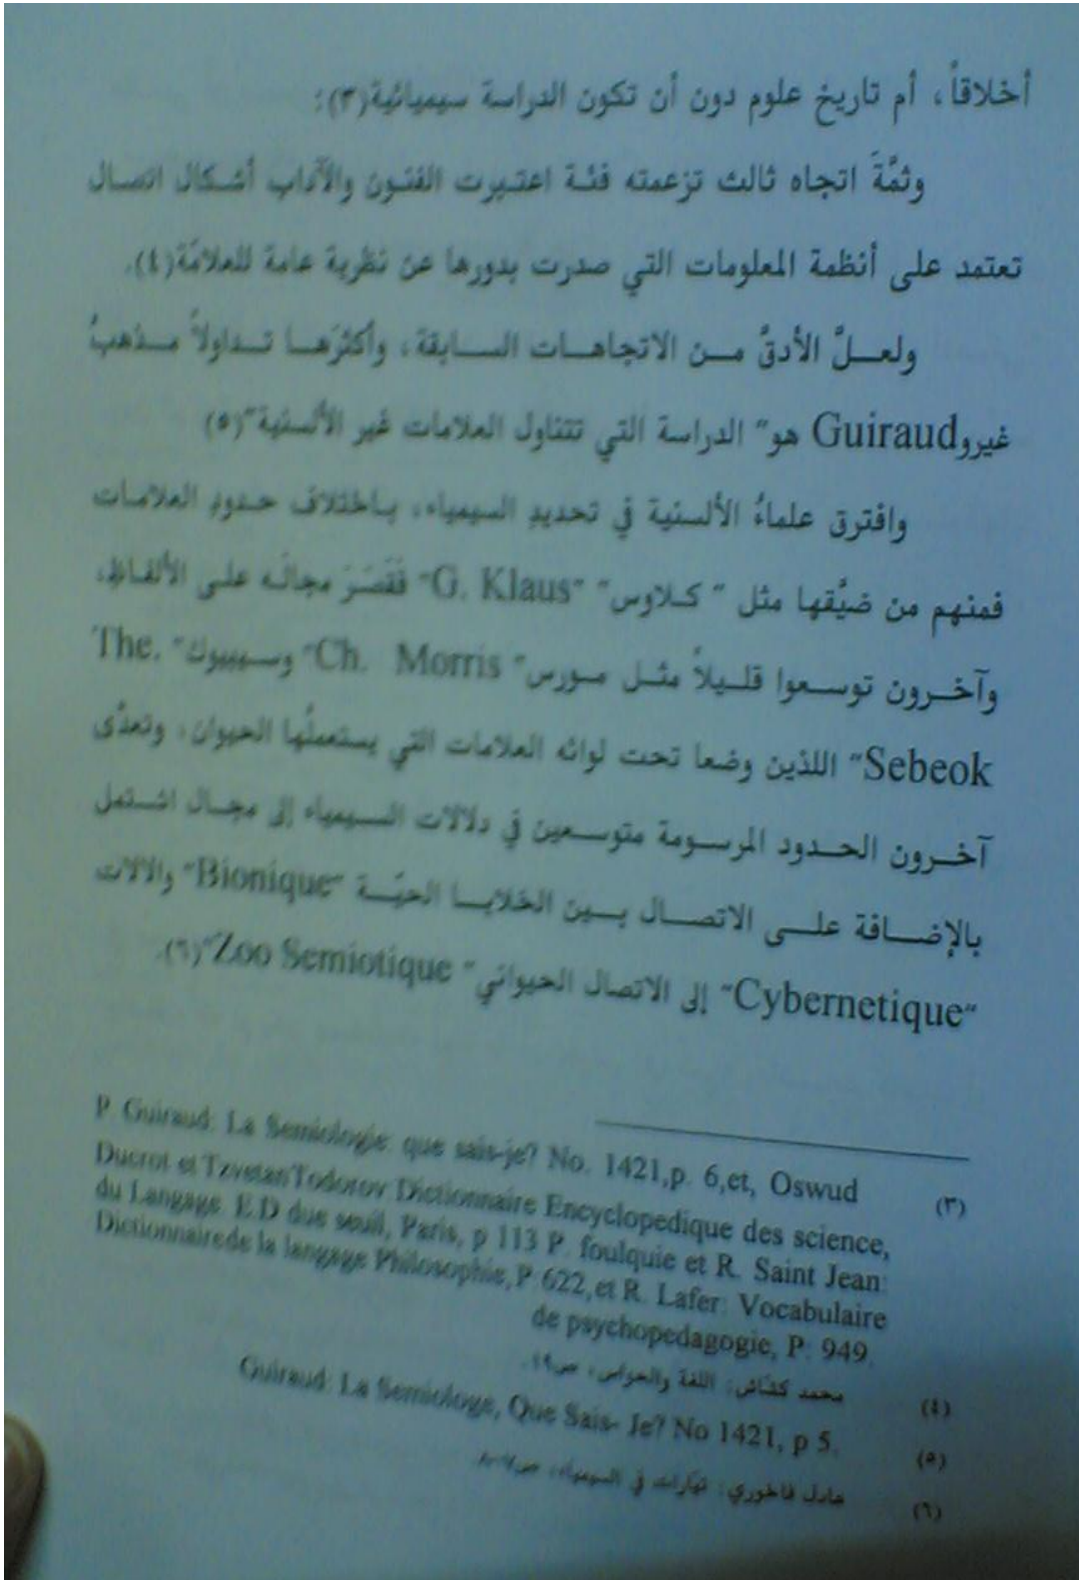 أخلاقاً، أم تاريخ علوم دون أن تكون الدراسة سيميائية(٣):
وثمَّةَ اتجاه ثالث تزعمته فئة اعتبرت الفنون والآداب أشكال اتصال
تعتمد على أنظمة المعلومات التي صدرت بدورها عن نظرية عامة للعلامّة(٤).
ولعلَّ الأدقَّ من الاتجاهات السابقة، وأكثرَها تداولاً مذهبُ
غيروGuiraud هو" الدراسة التي تتناول العلامات غير الألسنية"(٥)
وافترق علماءُ الألسنية في تحديدِ السيمياء، باختلاف حدودِ العلامات
فمنهم من ضيَّقها مثل " كلاوس" "G. Klaus" فقَصَرَ مجالَه على الألفاظ،
وآخرون توسعوا قليلاً مثل مورس" Ch. Morris" وسيبيوك" The.
Sebeok" اللذين وضعا تحت لوائه العلامات التي يستعملُها الحيوان، وتعدَّى
آخرون الحدود المرسومة متوسعين في دلالات السيمياء إلى مجال اشتمل
بالإضافة على الاتصال بين الخلايا الحيّة "Bionique" والآلات
"Cybernetique" إلى الاتصال الحيواني" Zoo Semiotique"(٦).
(٣) P. Guiraud: La Semiologie: que sais-je? No. 1421,p. 6,et, Oswud
Ducrot et TzvetanTodorov Dictionnaire Encyclopedique des science,
du Langage. E.D due seuil, Paris, p 113 P. foulquie et R. Saint Jean:
Dictionnairede la langage Philosophie, P. 622, et R. Lafer: Vocabulaire
de psychopedagogie, P. 949.
(٤) محمد كشّاش: اللغة والحواس، ص١٩.
(٥) Guiraud: La Semiologe, Que Sais- Je? No 1421, p 5.
(٦) عادل فاخوري: تيارات في السيمياء،